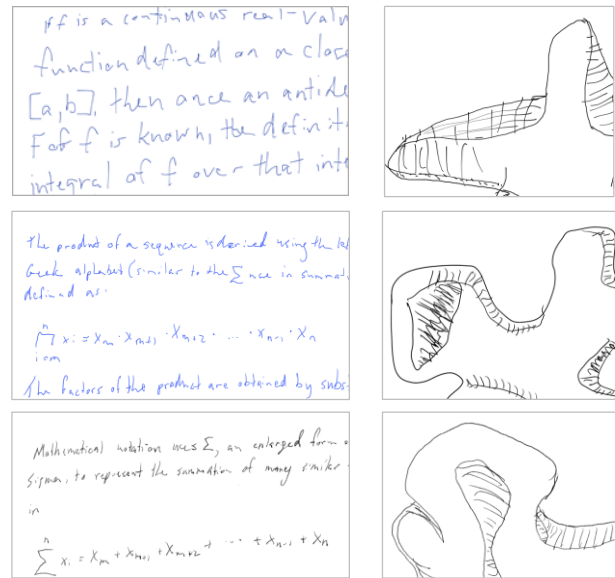 If f is a continuous real-valu
function defined on a close
[a,b], then once an antide
F of f is known, the definit
integral of f over that inte
The product of a sequence is derived using the
Greek alphabet (similar to the ∑ use in summat
defined as:
n
∏ xi = xm · xm+1 · xm+2 · ... · xn-1 · xn
i=m
The factors of the product are obtained by subs
Mathematical notation uses ∑, an enlarged form
sigma, to represent the summation of many similar
in
n
∑ xi = xm + xm+1 + xm+2 + ... + xn-1 + xn